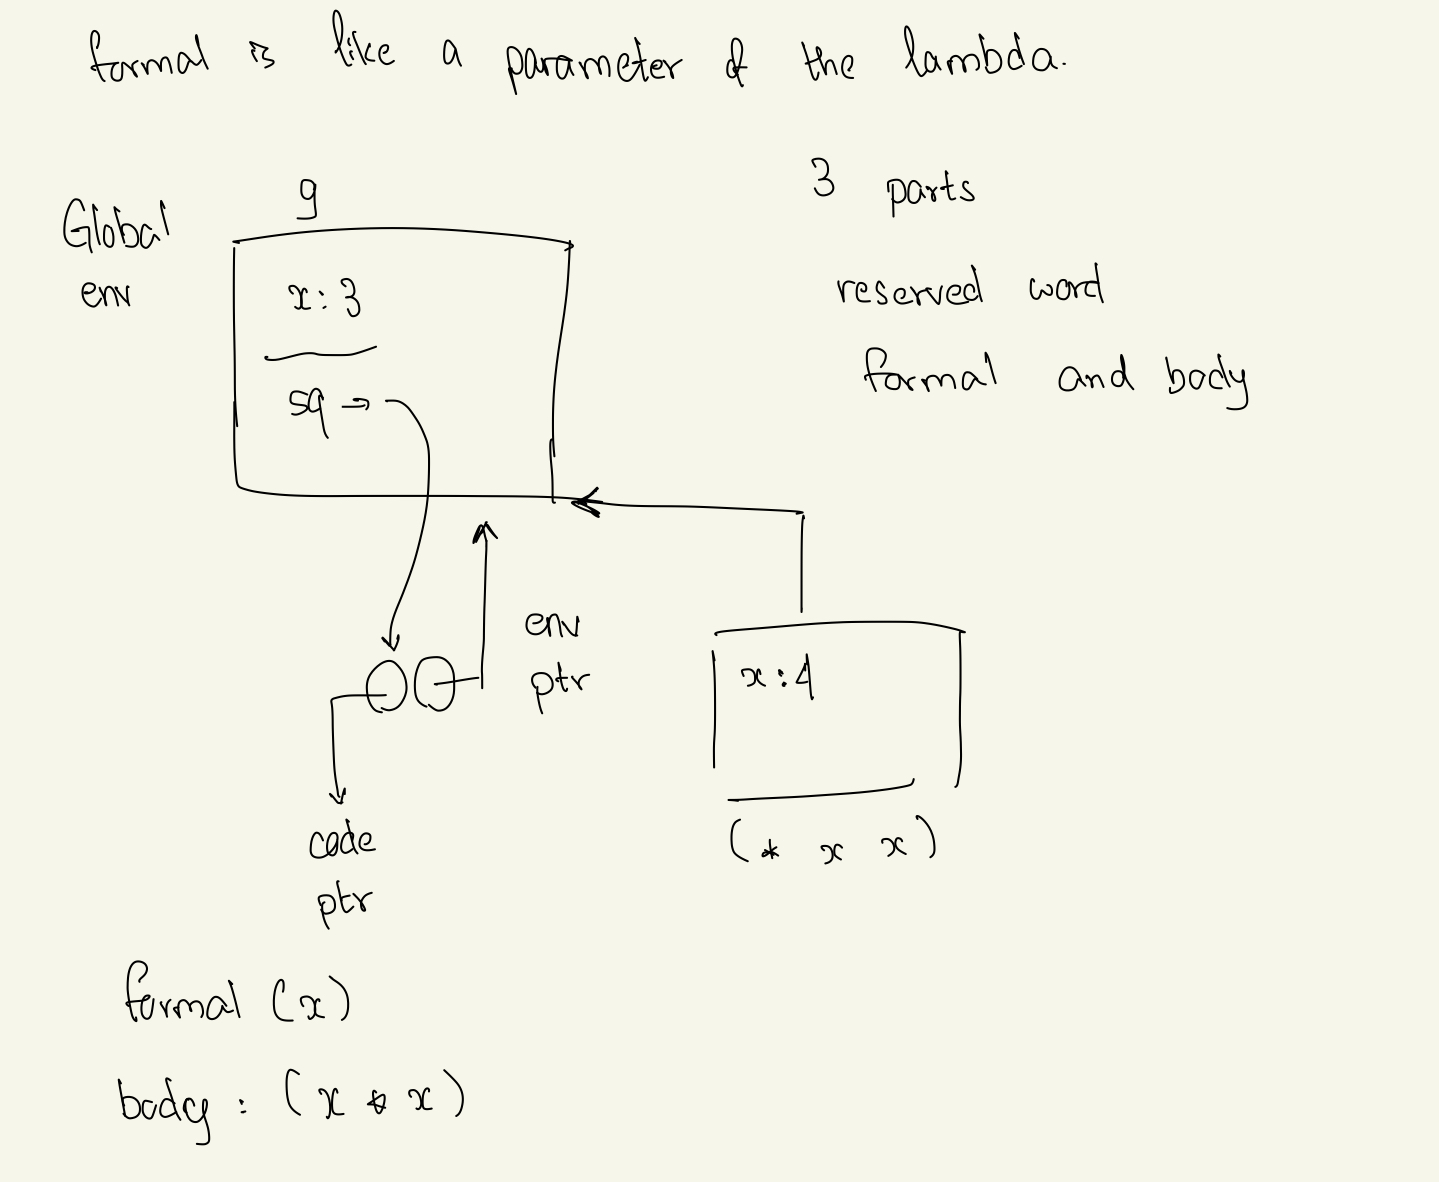 formal is like a parameter of the lambda.
g
3 parts
Global
env
x : 3
reserved word
formal and body
sq →
env
ptr
x : 4
code
ptr
(* x x)
formal (x)
body : (x * x)